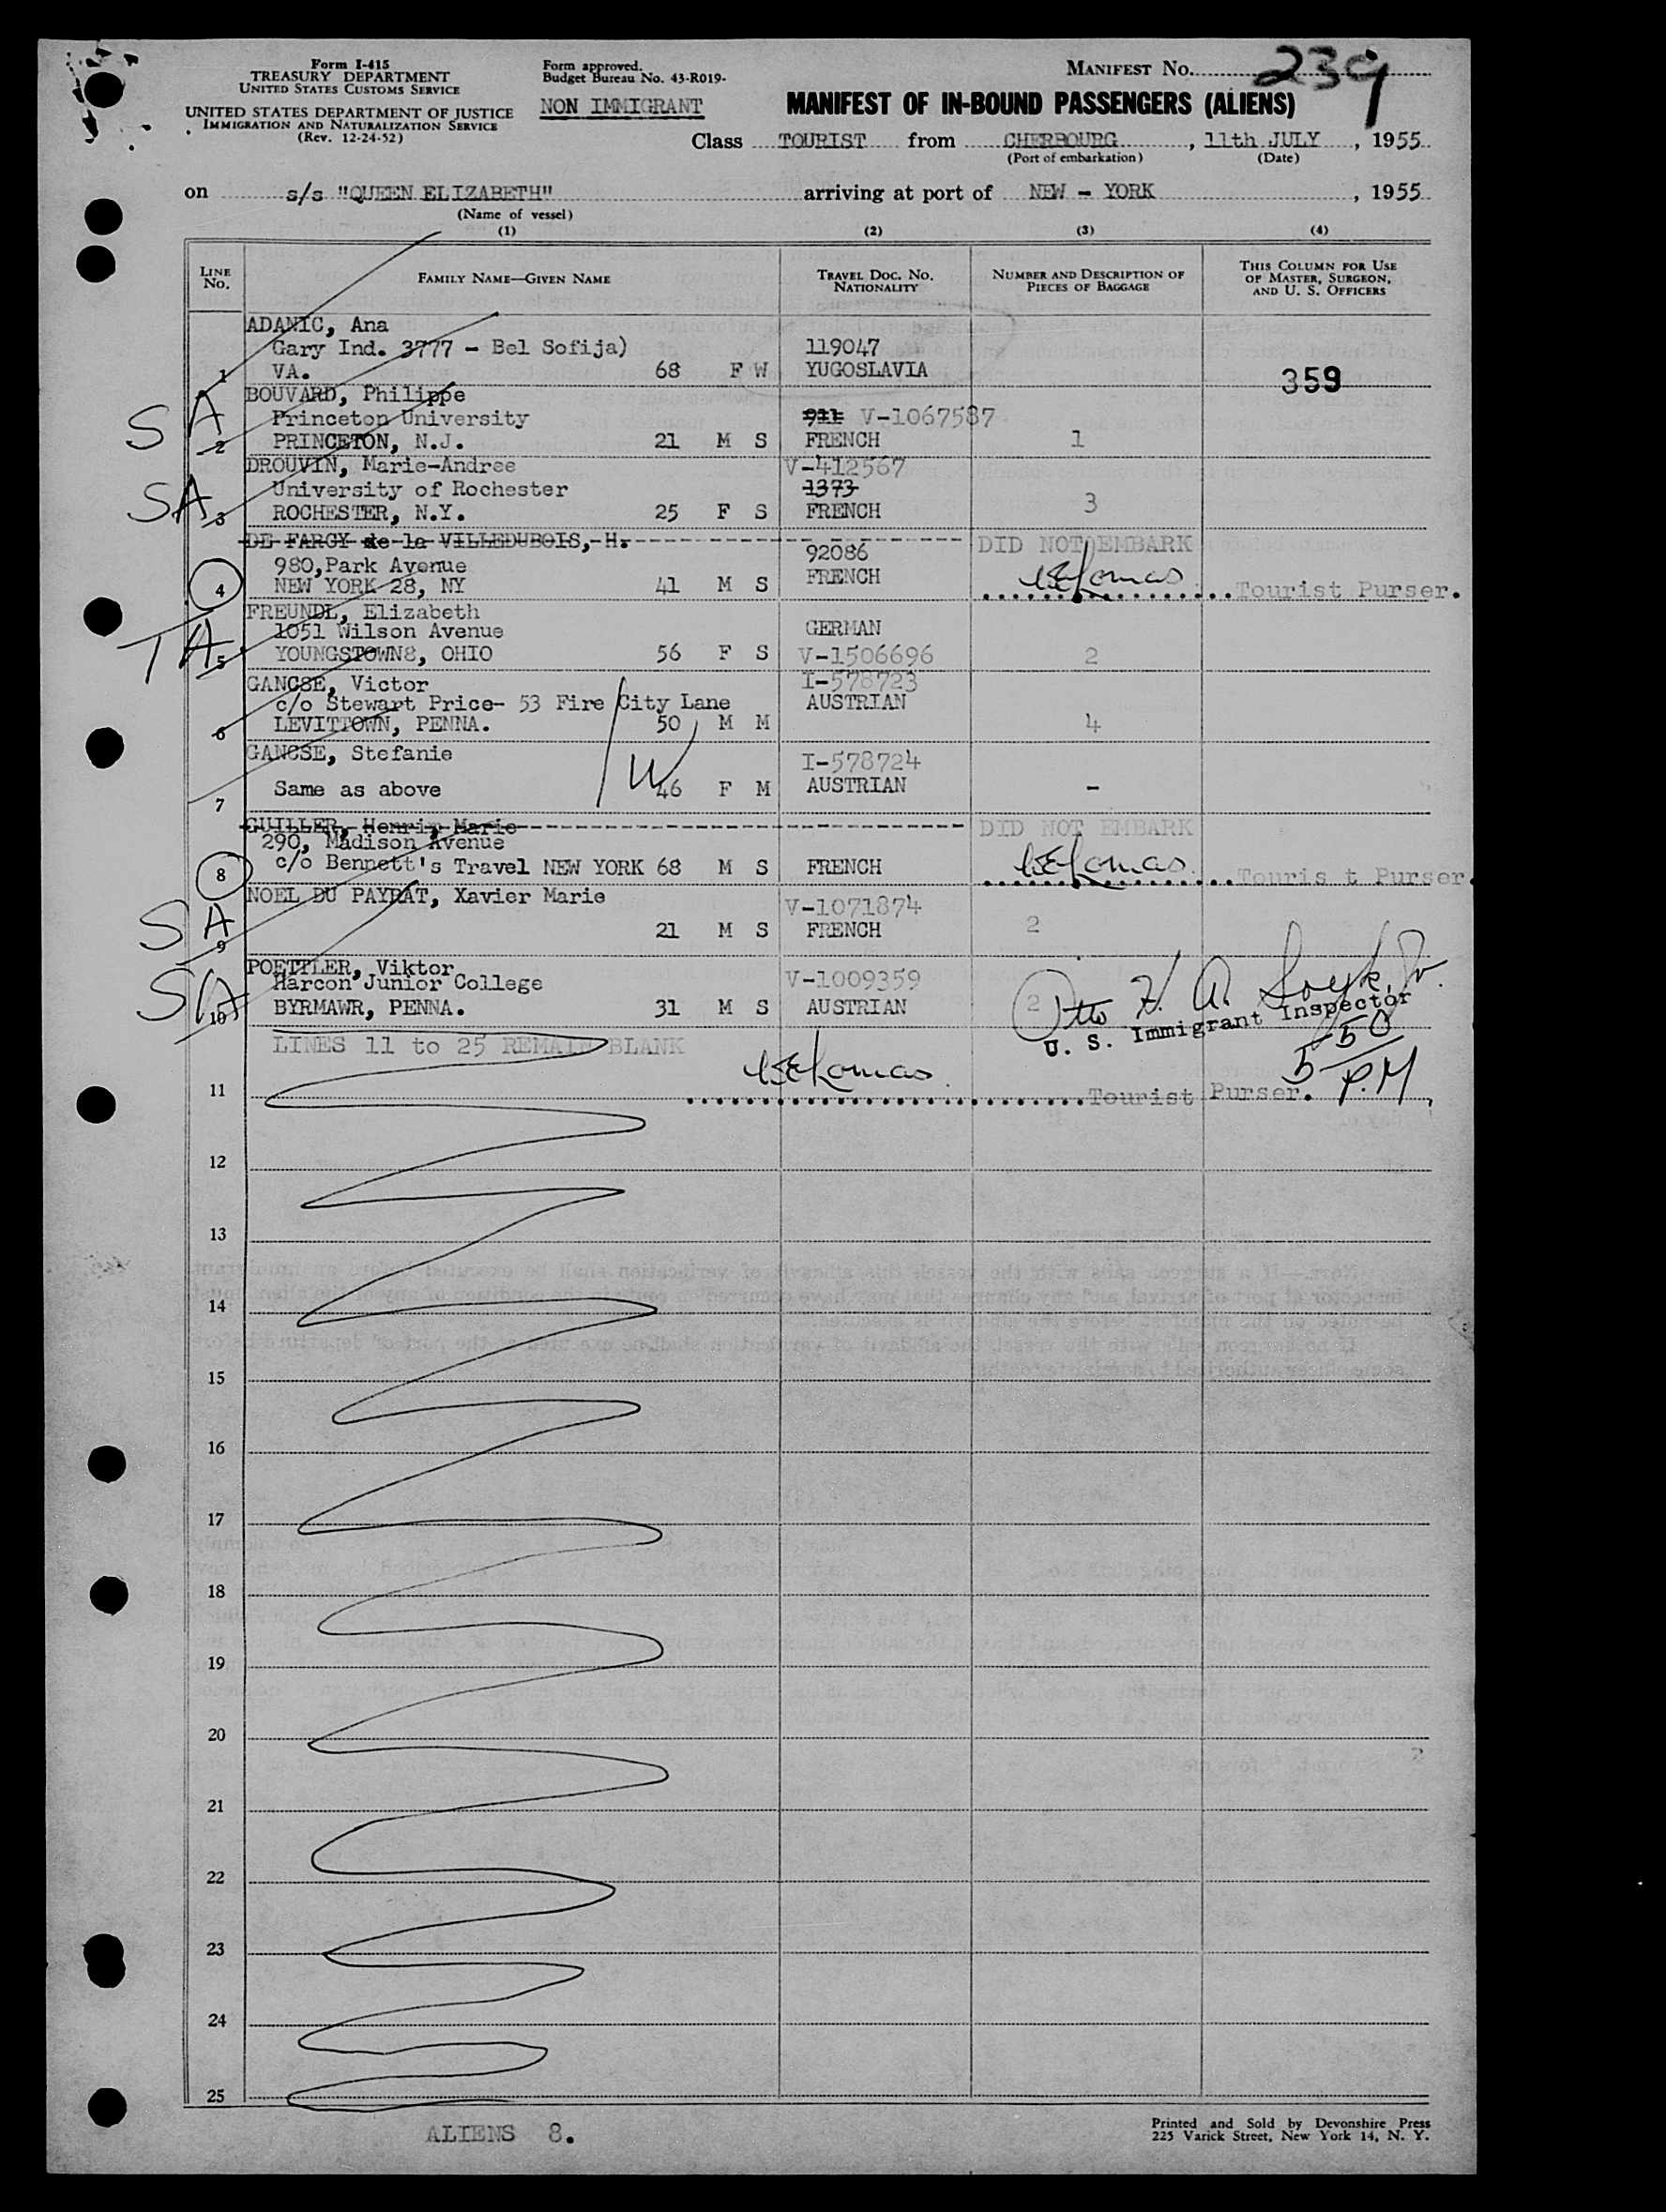 Form I-415
TREASURY DEPARTMENT
UNITED STATES CUSTOMS SERVICE
UNITED STATES DEPARTMENT OF JUSTICE
IMMIGRATION AND NATURALIZATION SERVICE
(Rev. 12-24-52)
Form approved.
Budget Bureau No. 43-R019-
NON IMMIGRANT
MANIFEST No. 239
MANIFEST OF IN-BOUND PASSENGERS (ALIENS)
Class TOURIST from CHERBOURG, 11th JULY, 1955
(Port of embarkation) (Date)
on s/s "QUEEN ELIZABETH" arriving at port of NEW - YORK, 1955
(Name of vessel)
(1) (2) (3) (4)
LINE No. FAMILY NAME—GIVEN NAME TRAVEL DOC. NO. NATIONALITY NUMBER AND DESCRIPTION OF PIECES OF BAGGAGE THIS COLUMN FOR USE OF MASTER, SURGEON, AND U. S. OFFICERS
ADANIC, Ana
Gary Ind. 3777 - Bel Sofija) 119047
1 VA. 68 F W YUGOSLAVIA 359
BOUVARD, Philippe
S A Princeton University 911 V-1067587
2 PRINCETON, N.J. 21 M S FRENCH 1
DROUVIN, Marie-Andree V-412567
SA University of Rochester 1373 3
3 ROCHESTER, N.Y. 25 F S FRENCH
DE FARGY de la VILLEDUBOIS, H. DID NOT EMBARK
980, Park Avenue 92086
4 NEW YORK 28, NY 41 M S FRENCH Tourist Purser.
FREUNDL, Elizabeth
1051 Wilson Avenue GERMAN
TA 5 YOUNGSTOWN8, OHIO 56 F S V-1506696 2
GANCSE, Victor I-578723
c/o Stewart Price- 53 Fire City Lane AUSTRIAN
6 LEVITTOWN, PENNA. 50 M M 4
GANCSE, Stefanie I-578724
7 Same as above 46 F M AUSTRIAN -
GUILLER, Henri, Marie DID NOT EMBARK
290, Madison Avenue
8 c/o Bennett's Travel NEW YORK 68 M S FRENCH Touris t Purser.
NOEL DU PAYRAT, Xavier Marie V-1071874
S A 9 21 M S FRENCH 2
POETTLER, Viktor
Harcon Junior College V-1009359
SA 10 BYRMAWR, PENNA. 31 M S AUSTRIAN 2
U. S. Immigrant Inspector
LINES 11 to 25 REMAIN BLANK
5 50 P.M
11 Tourist Purser.
12
13
14
15
16
17
18
19
20
21
22
23
24
25
ALIENS 8.
Printed and Sold by Devonshire Press
225 Varick Street, New York 14, N. Y.